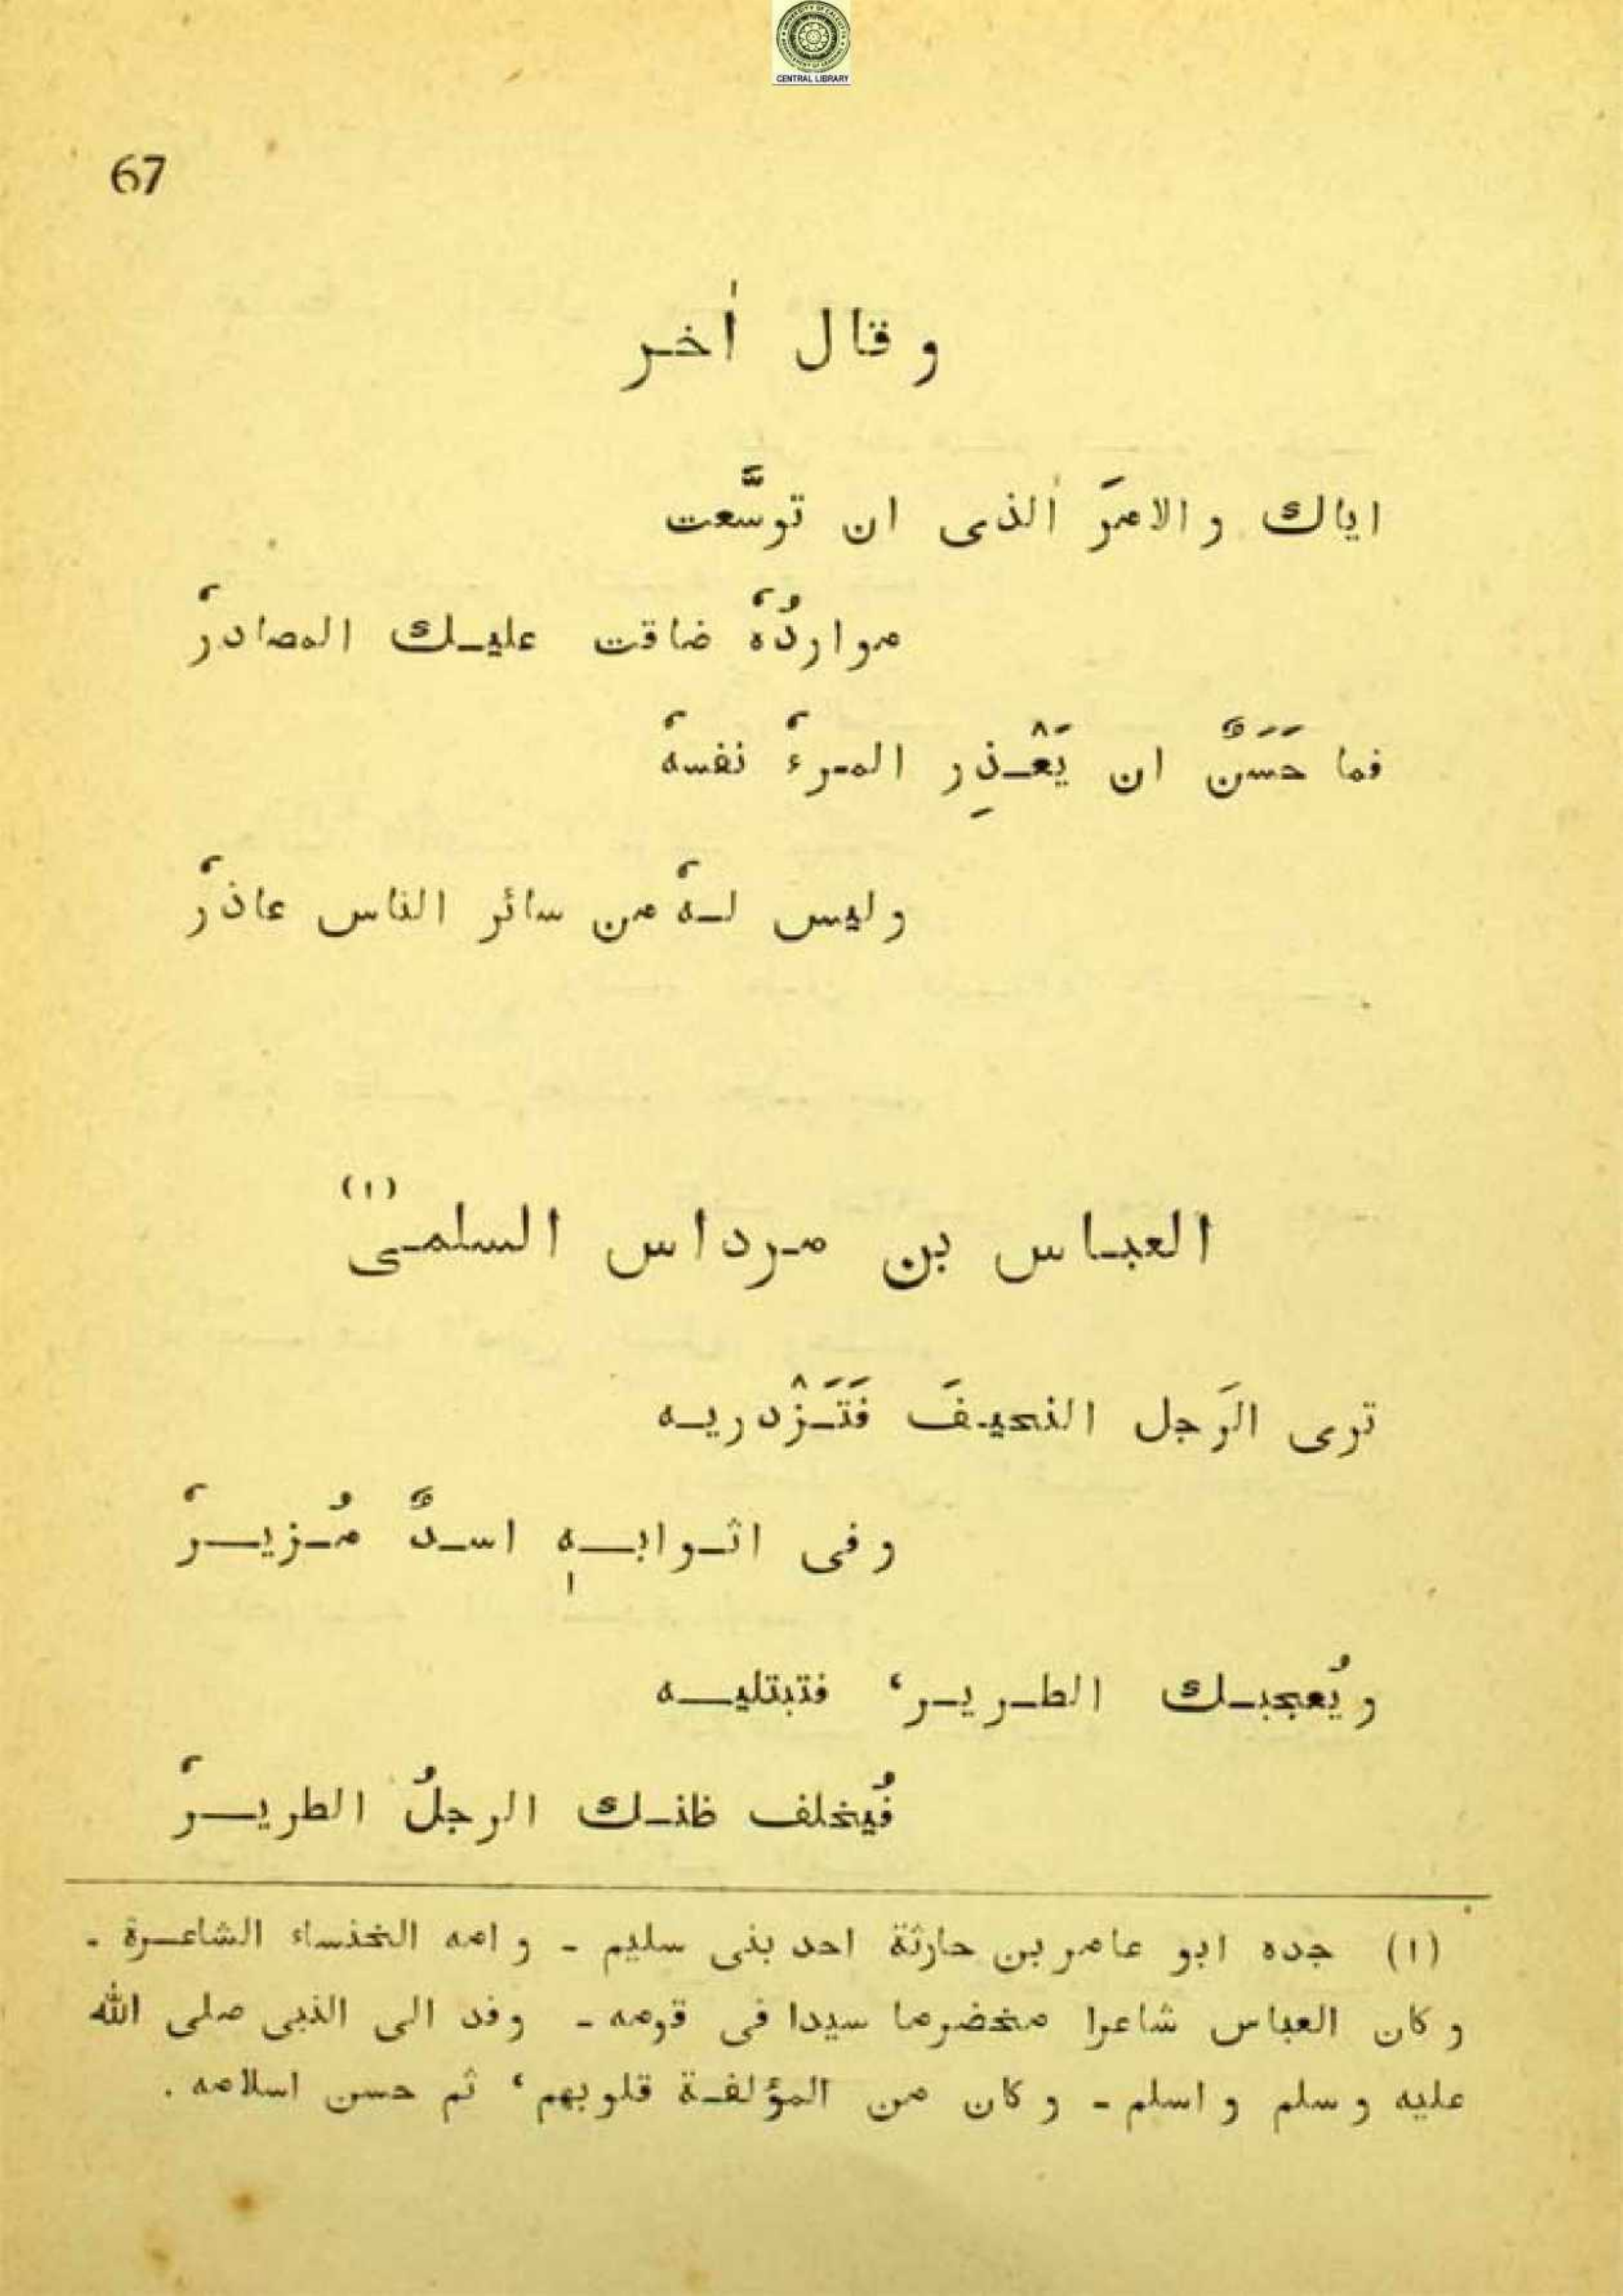 CENTRAL LIBRARY
67
و قال اٰخر
اياك و الامرَ اٰلذى ان توسَّعت
مواردُهٗ ضاقت عليك المصادرٗ
فما حَسَنٌ ان يَعْذِر المرءٗ نفسهٗ
و ليس لهٗ من سائر الناس عاذرٗ
العباس بن مرداس السلمى (١)
ترى الرَجل النحيفَ فَتَزْدريه
و فى اثوابهٖ اسدٌ مُزيرٗ
و يُعجبك الطرير، فتبتليه
فُيخلف ظنك الرجلُ الطريرٗ
(١) جده ابو عامر بن حارثة احد بنى سليم ـ و امه الخنساء الشاعرة ـ
و كان العباس شاعرا مخضرما سيدا فى قومه ـ وفد الى النبى صلى الله
عليه و سلم و اسلم ـ و كان من المؤلفة قلوبهم، ثم حسن اسلامه .